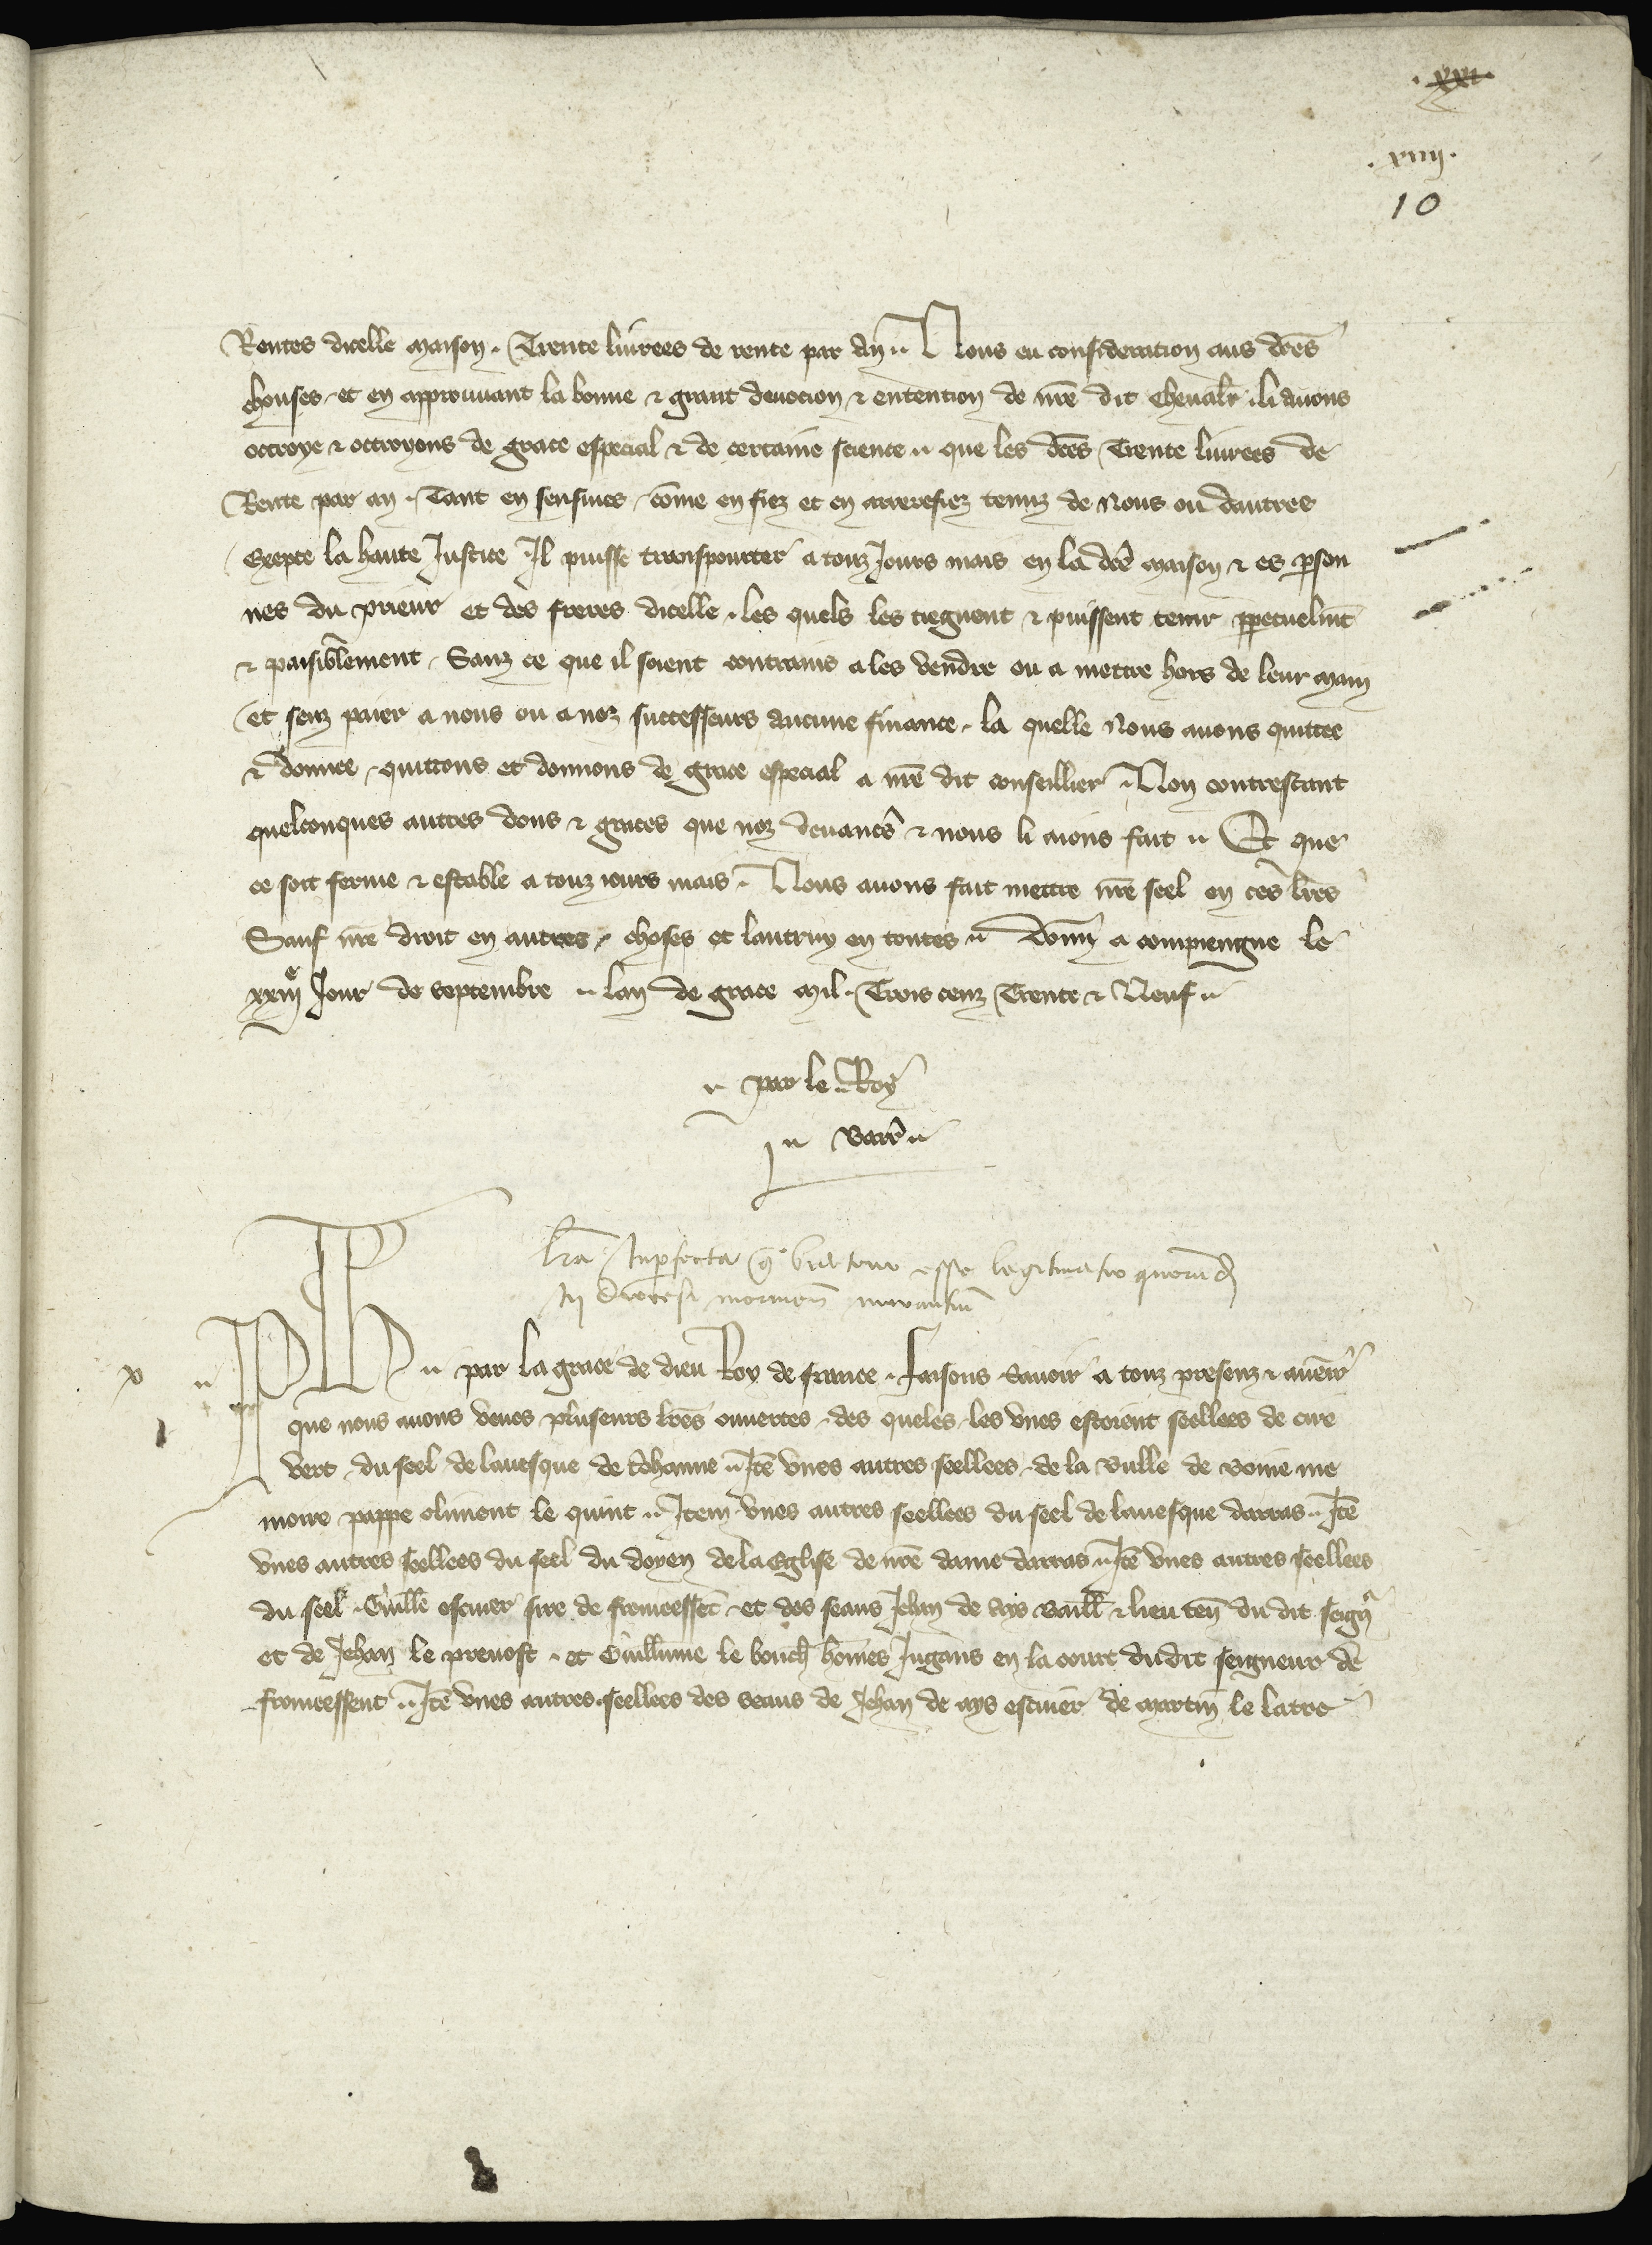 .xxi.
.xiiij.
10
Rentes dicelle maison. Trente livrees de rente par an. Nous eu consideration aus dces
chouses. et en approuvant la bonne & grant devocion & entention de nre dit chevalr. li avons
octroye & octroyons de grace especial & de certaine science. que les dces Trente livrees de
Rente par an. Tant en sensives. come en fiez et en arrerefiez tenuz de nous ou dautres
Exepte la haute Justice Il puisse transpourter a touz Jours mais en la dce maison & es person
nes du prieur et des freres dicelle. les quels les tiegnent & puissent tenir perpetuelmt
& paisiblement. Sanz ce que il soient contrains a les vendre ou a mettre hors de leur main
et senz paier a nous ou a noz successeurs aucune finance. la quelle nous avons quittee
& donnee. quittons et donnons de grace especial a nre dit conseillier. Non contrestant
quelconques autres dons & graces que noz devanc & nous li aions fait. Et que
ce soit ferme & estable a touz iours mais. Nous avons fait mettre nre seel en ces lres
Sauf nre droit en autres choses et lautruy en toutes. Donn a compiengne le
xxiije Jour de septembre. lan de grace mil. Trois cenz Trente & Neuf.
par le Roy
Barr
lra Inperfecta q videtur esse legitimatio quorumd
In diocesi morinen morantium
x
Ph par la grace de dieu Roy de france. Faisons savoir a touz presenz & avenir
que nous avons veues pluseurs lres ouvertes. des queles. les unes estoient seellees de cire
vert. du seel de levesque de Therouanne. Ite unes autres seellees. de la bulle de bonne me
moire pappe climent le quint. Item unes autres seellees du seel de levesque darras. Ite
unes autres seellees du seel du doyen de la Eglise de nre dame darras. Ite unes autres seellees
du seel. Guille escuier sire de fromeessent. et des seaus Jehan de Ays baill & lieu ten du dit seign
et de Jehan le prevost. et Guillaume le bouch homes Jugans en la court dudit seigneur de
fromeessent. Ite unes autres seellees des seaus de Jehan de ays escuier de martin le latre